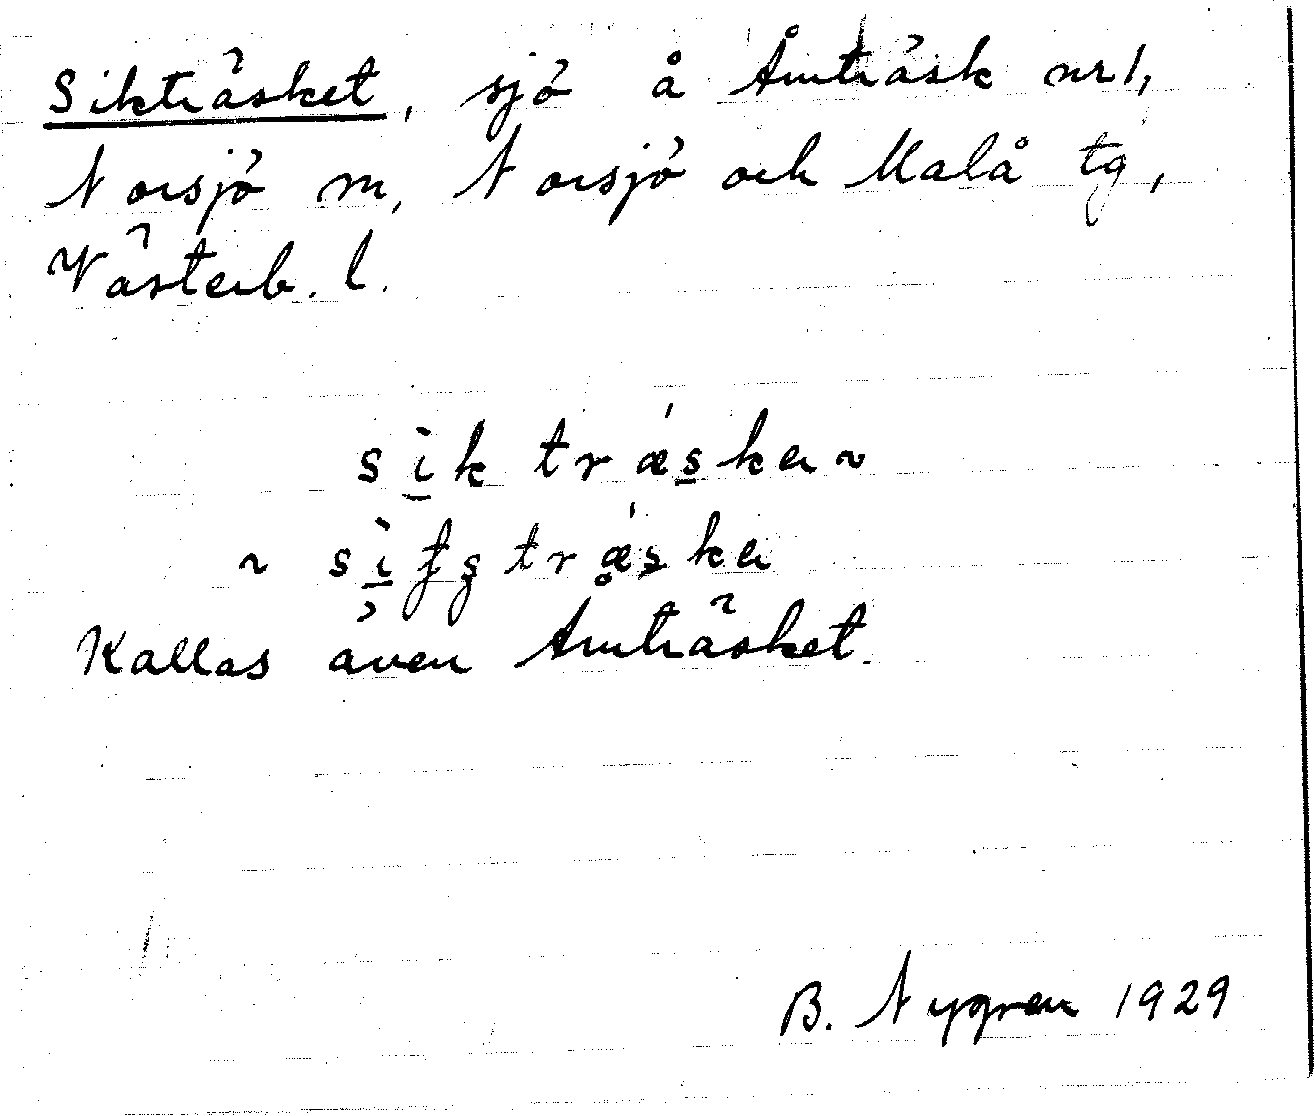 Sikträsket, sjö å Åmträsk nr 1,
Norsjö sn, Norsjö och Malå tg,
Västerb. l.
sìk tráskɐ ~
~ träskɐ
Kallas även Åmträsket.
B. Nygren 1929